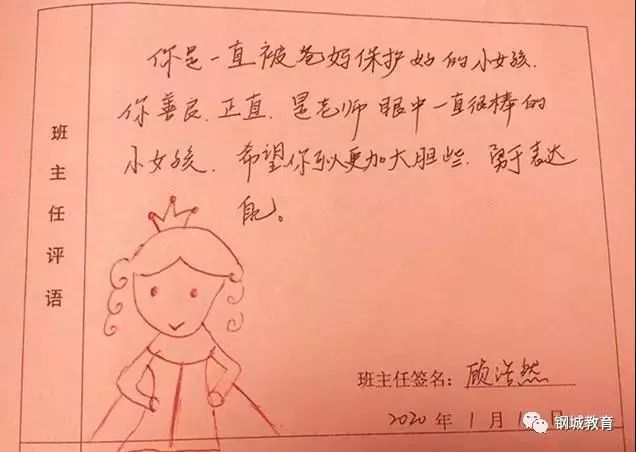 你是一直被爸妈保护好的小女孩.
你善良.正直.是老师眼中一直很棒的
小女孩.希望你可以更加大胆些.勇于表达
自己。
班主任评语
班主任签名：顾浩然
2020年1月1 日
钢城教育